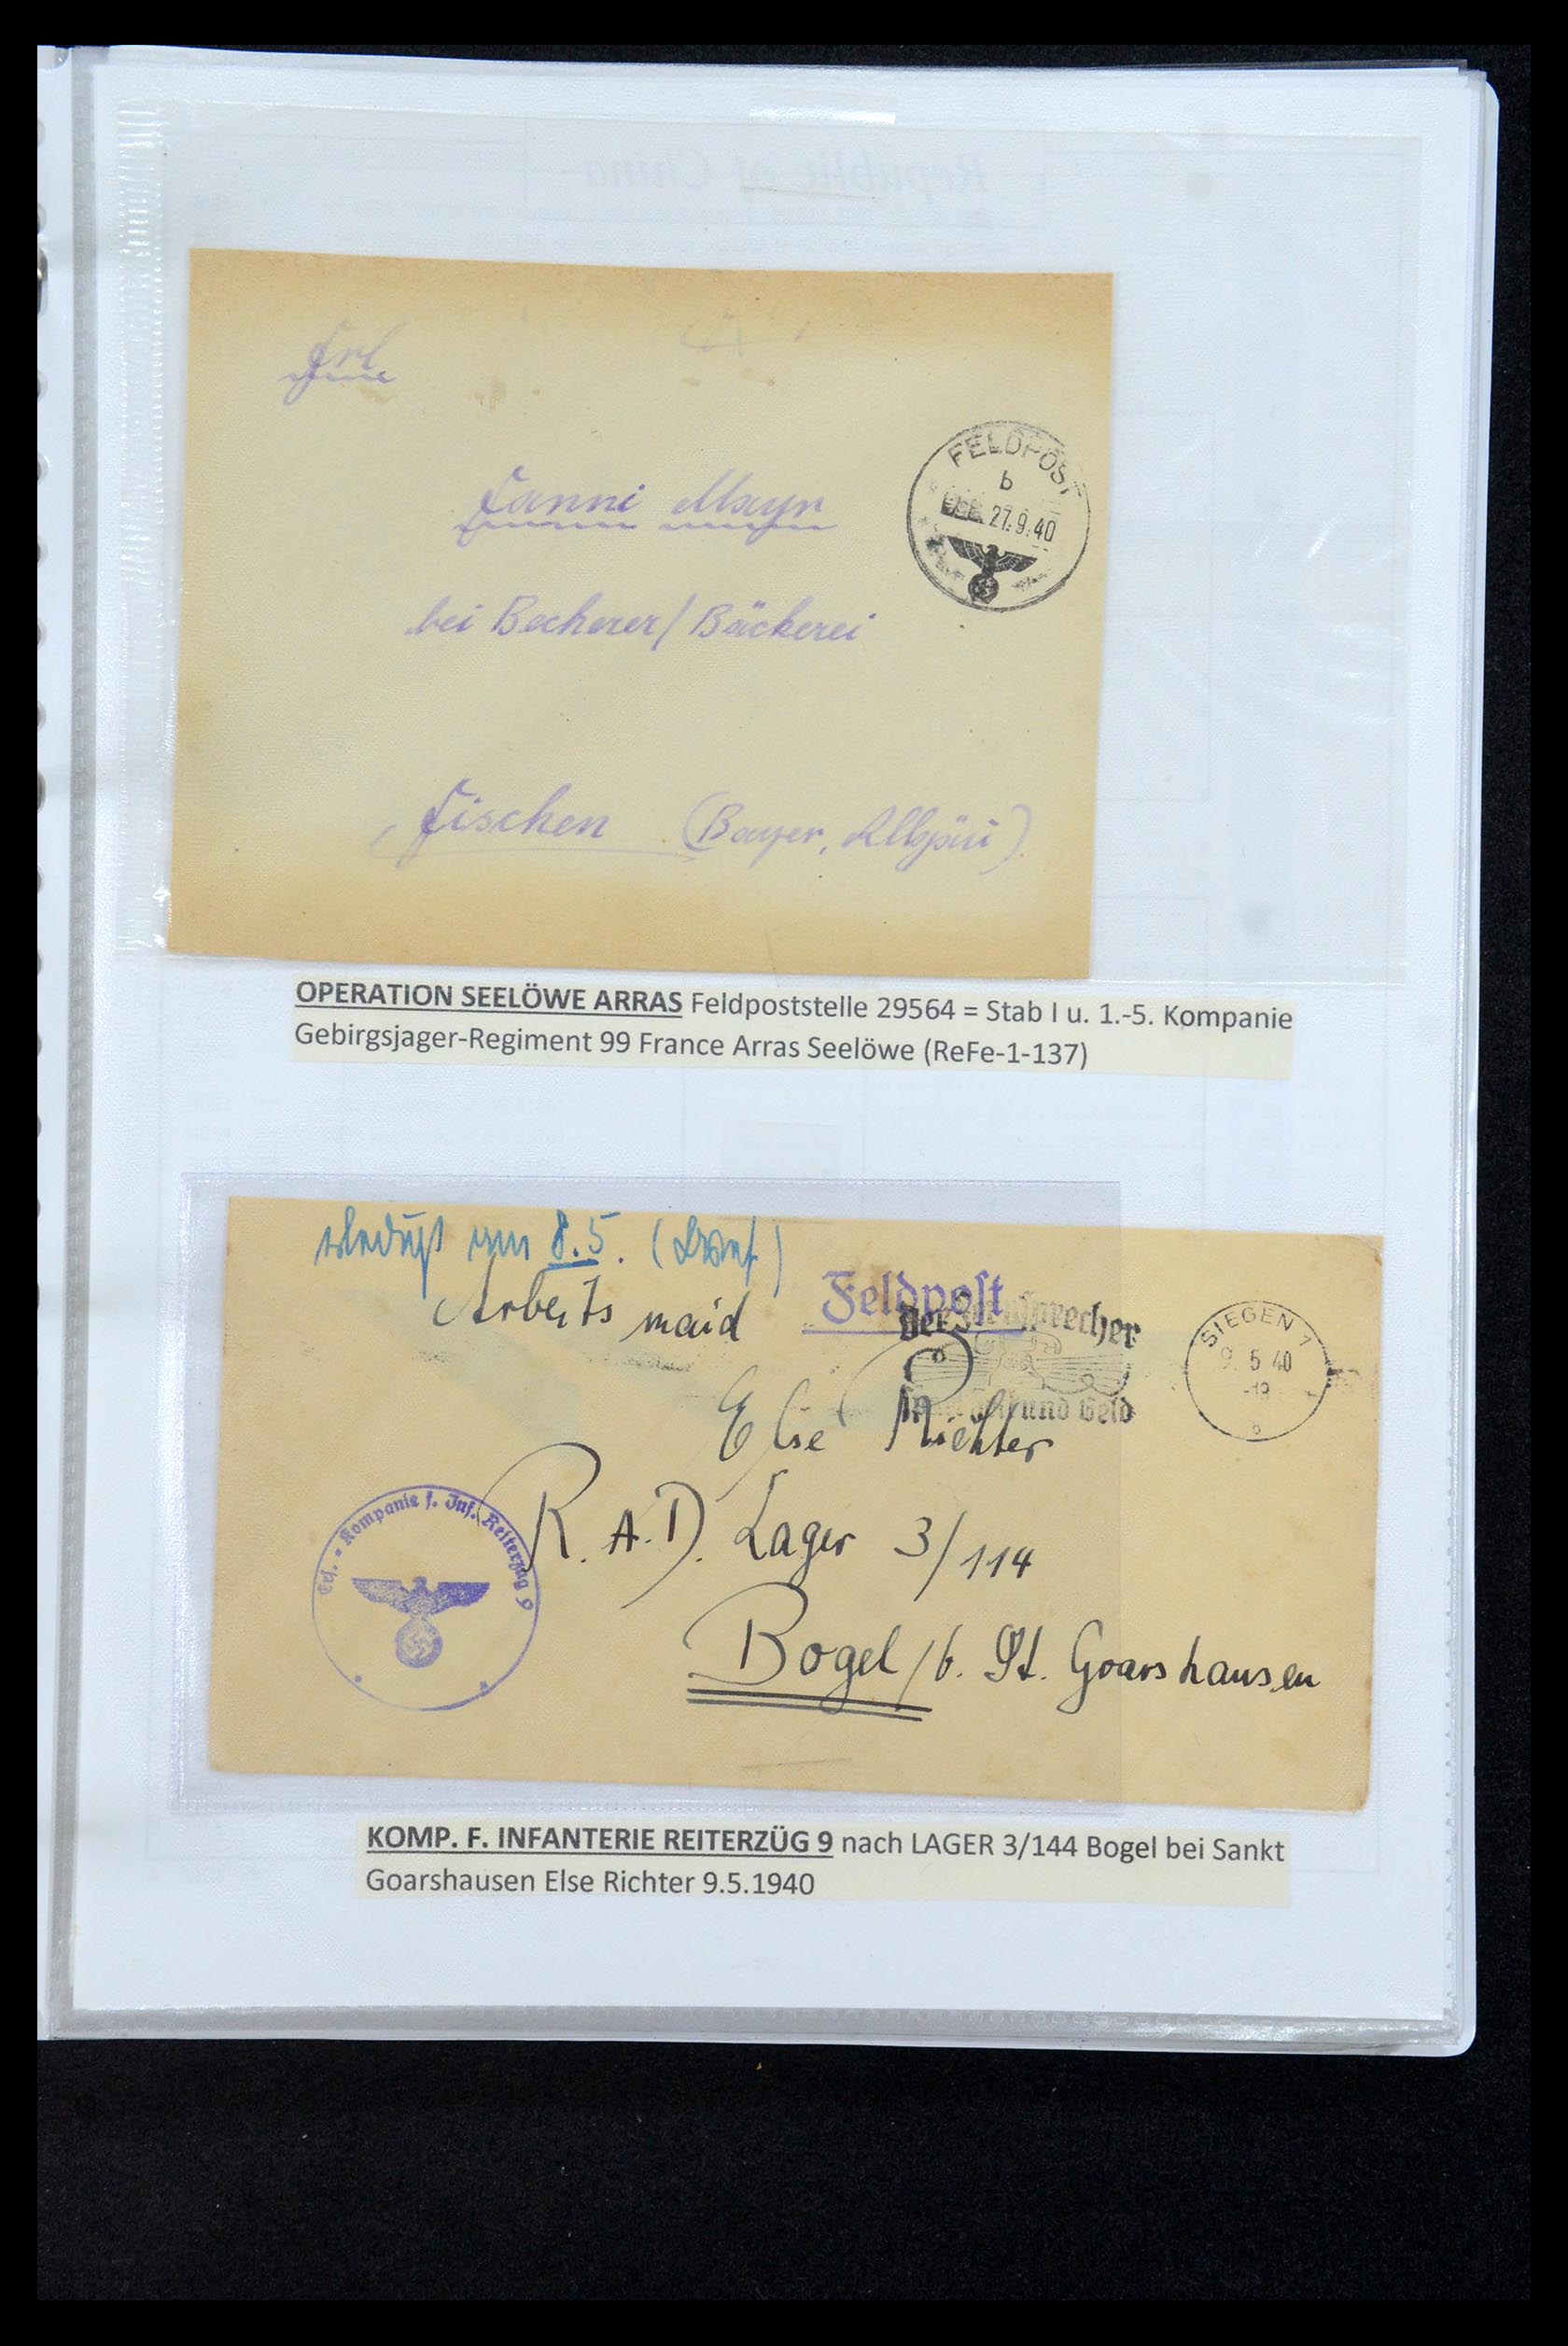 Republic of China
Frl
Fanni Mayr
FELDPOST
b
27.9.40
bei Becherer / Bäckerei
Fischen (Bayer. Allgäu)
OPERATION SEELÖWE ARRAS Feldpoststelle 29564 = Stab I u. 1.-5. Kompanie
Gebirgsjager-Regiment 99 France Arras Seelöwe (ReFe-1-137)
erledigt am 8.5.
Arbeitsmaid
Feldpost
Der Fernsprecher
und Geld
SIEGEN 1
9 5 40
-19
b
Else Richter
Ers.-Kompanie f. Inf. Reiterzug 9
R.A.D. Lager 3/114
Bogel / b. St. Goarshausen
KOMP. F. INFANTERIE REITERZÜG 9 nach LAGER 3/144 Bogel bei Sankt
Goarshausen Else Richter 9.5.1940